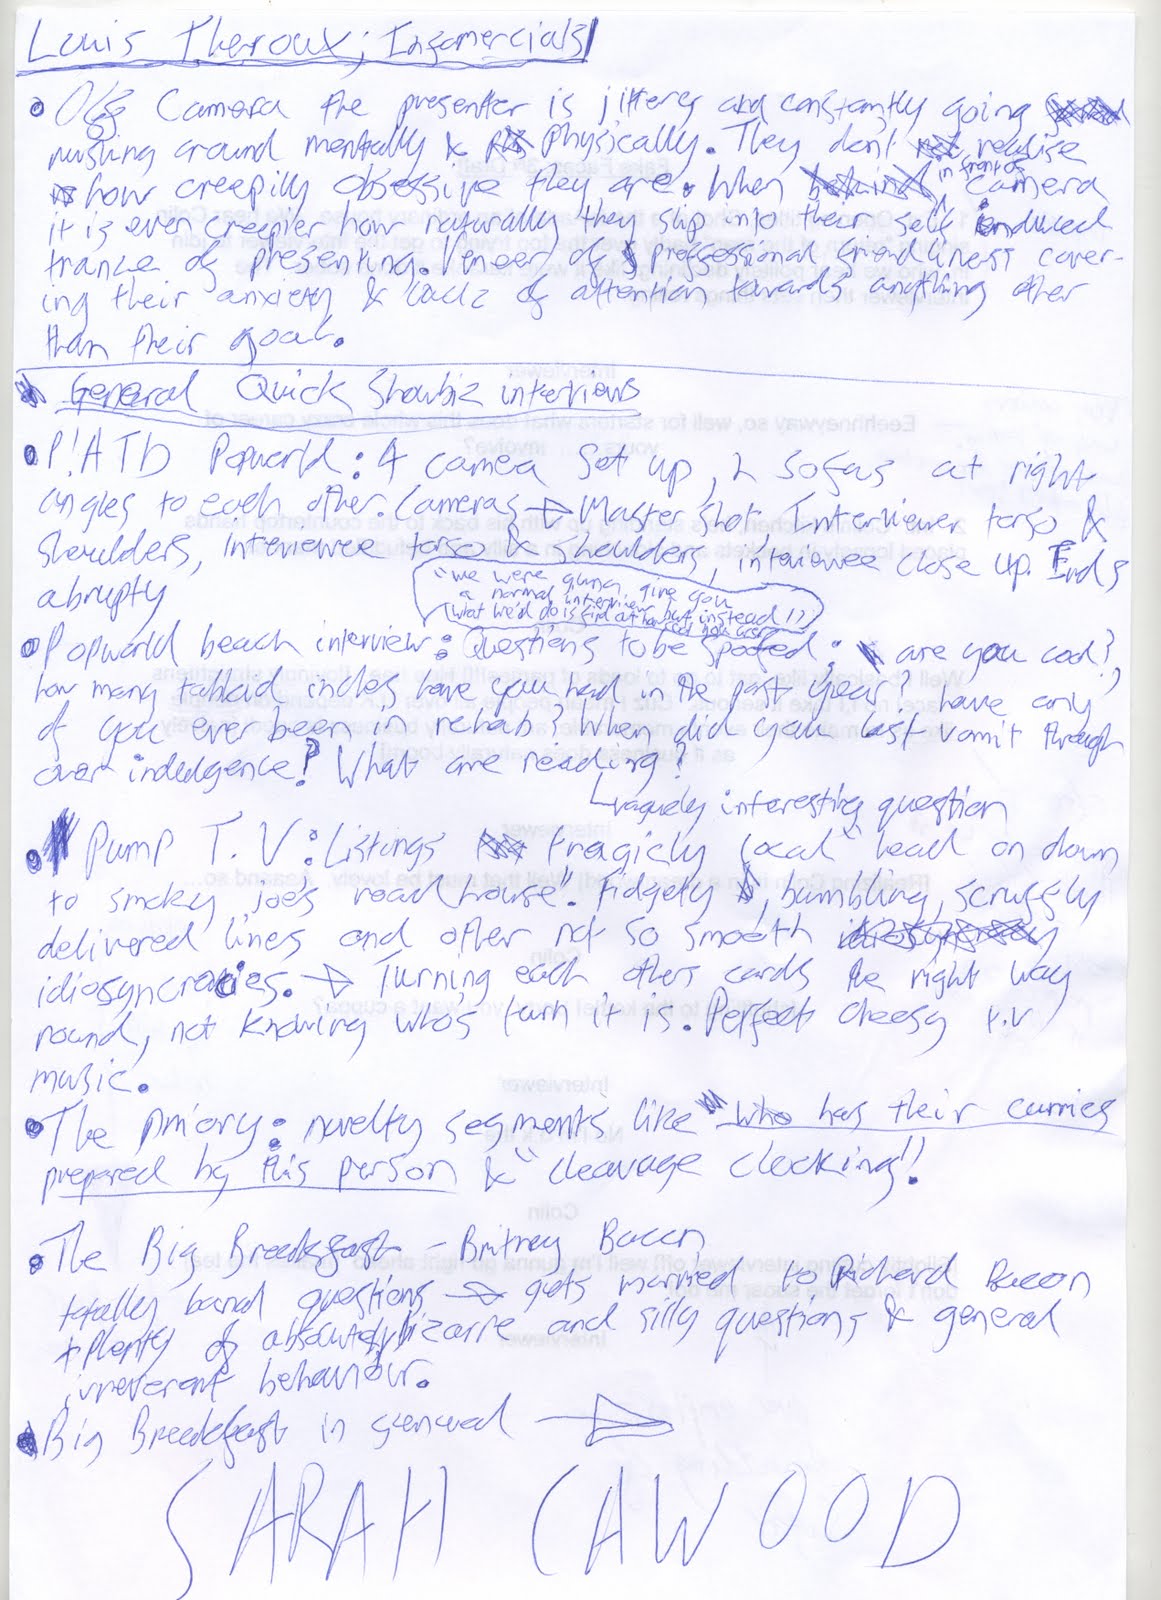 Louis Theroux; Infomercials
Off Camera the presenter is jittery and constantly going
rushing around mentally & physically. They dont realise
how creepily obsessive they are. When in front of camera
it is even creepier how naturally they slip into their self induced
trance of presenting. Veneer of professional friendliness cover-
ing their anxiety & lack of attention towards anything other
than their goal.
General Quick Showbiz interviews
P!ATD Popworld: 4 camera set up, 2 sofas at right
angles to each other. Cameras → Master shot, Interviewer torso &
shoulders, interviewee torso & shoulders, interviewee close up. Ends
abrupty
"We were gunna give you
a normal interview but instead
what we'd do is find out how
Popworld beach interview: Questions to be spoofed: are you cool?,
how many tabloid inches have you had in the past year?, have any
of you ever been in rehab? When did you last vomit through
over indulgence? What are reading?
vaguely interesting question
Pump T.V: Listings tragicly local "head on down
to smoky joe's road house". Fidgety, bumbling, scruggly
delivered lines and often not so smooth
idiosyncracies. → Turning each others cards the right way
round, not knowing who's turn it is. Perfect cheesy T.V
music.
The priory: novelty segments like "who has their curries
prepared by this person & "cleavage clocking"!
The Big Breakfast - Britney Bacon
totally banal questions → gets married to Richard Bacon
+ plenty of absolutely bizarre and silly questions & general
irreverant behaviour.
Big Breakfast in general →
SARAH CAWOOD